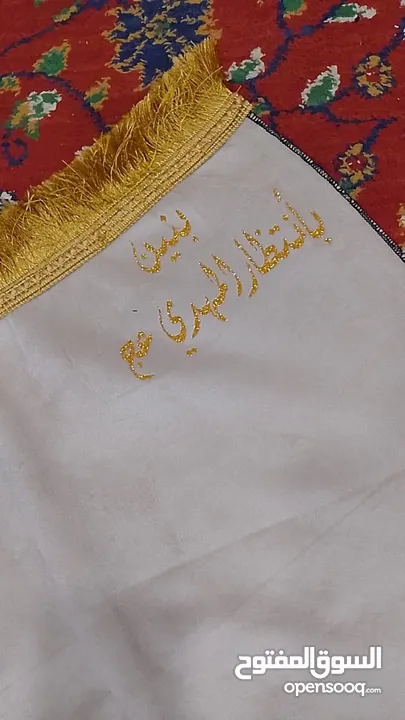 بنين
بانتظار المهدي عج
السوق المفتوح
opensooq.com